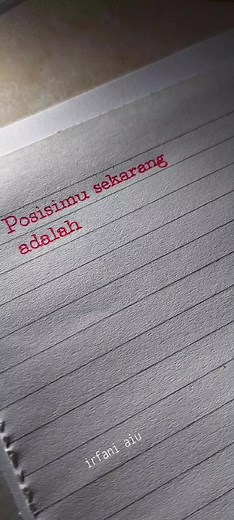 Posisimu sekarang
adalah
irfani aiu